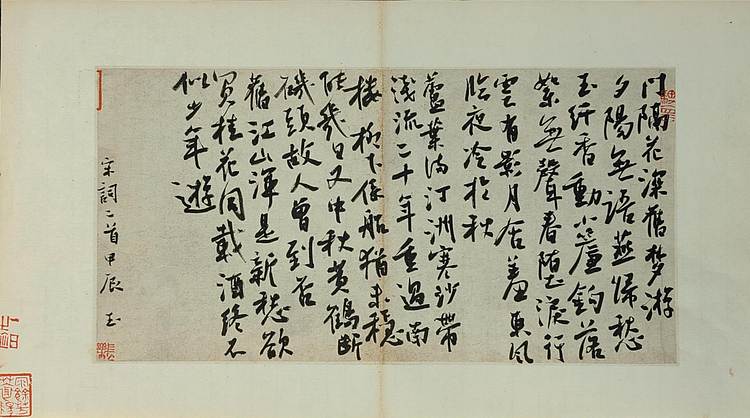 门隔花深舊梦游
夕陽無語燕歸愁
玉纤香動小簾鈎落
絮無聲春堕淚行
雲有影月含羞東風
臨夜冷於秋
蘆葉满汀洲寒沙帶
淺流二十年重過南
樓柳下係船猶未穩
能幾日又中秋黄鶴断
磯頭故人曾到否
舊江山渾是新愁欲
買桂花同載酒終不
似少年遊
宋詞二首甲辰 玉